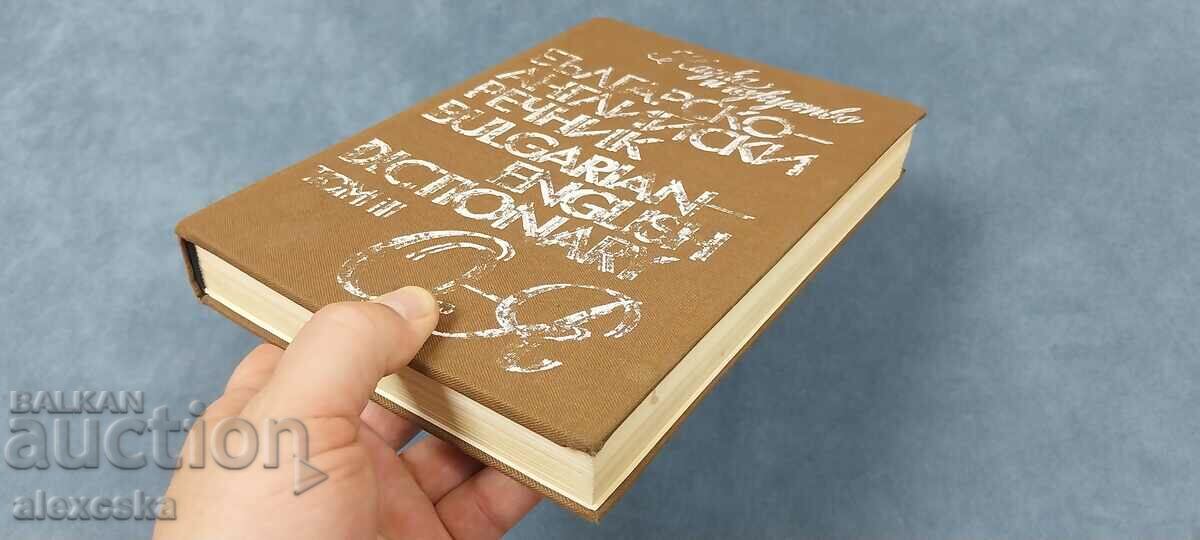 Наука и изкуство
БЪЛГАРСКО–
АНГЛИЙСКИ
РЕЧНИК
BULGARIAN–
ENGLISH
DICTIONARY
ТОМ II
BALKAN
auction
alexeska